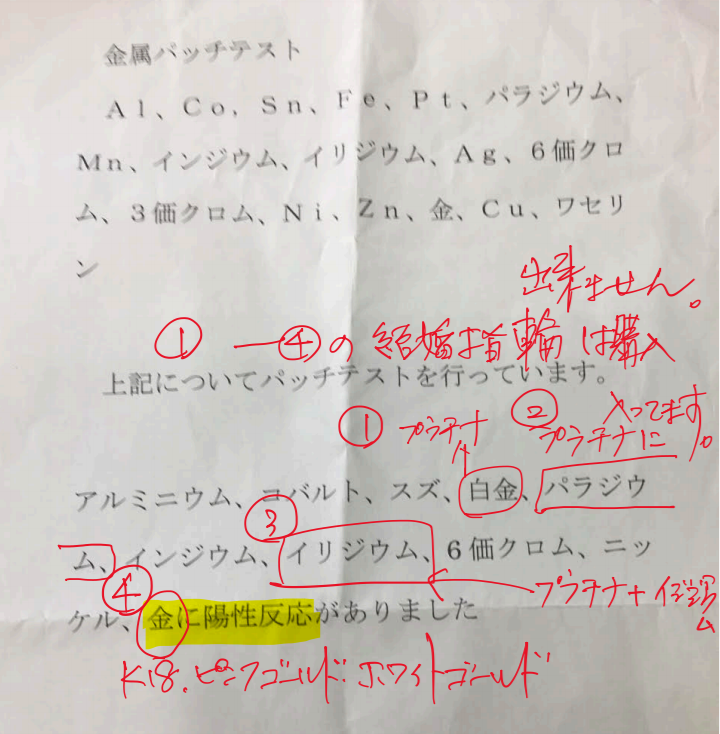 金属パッチテスト
Ａｌ、Ｃｏ、Ｓｎ、Ｆｅ、Ｐｔ、パラジウム、
Ｍｎ、インジウム、イリジウム、Ａｇ、６価クロ
ム、３価クロム、Ｎｉ、Ｚｎ、金、Ｃｕ、ワセリ
ン
① ー④の結婚指輪は購入
出来ません。
上記についてパッチテストを行っています。
① プラチナ
② プラチナに
入ってます。
アルミニウム、コバルト、スズ、白金、パラジウ
③
ム、インジウム、イリジウム、６価クロム、ニッ
④
プラチナ＋
ケル、金に陽性反応がありました
K18.ピンクゴールド.ホワイトゴールド